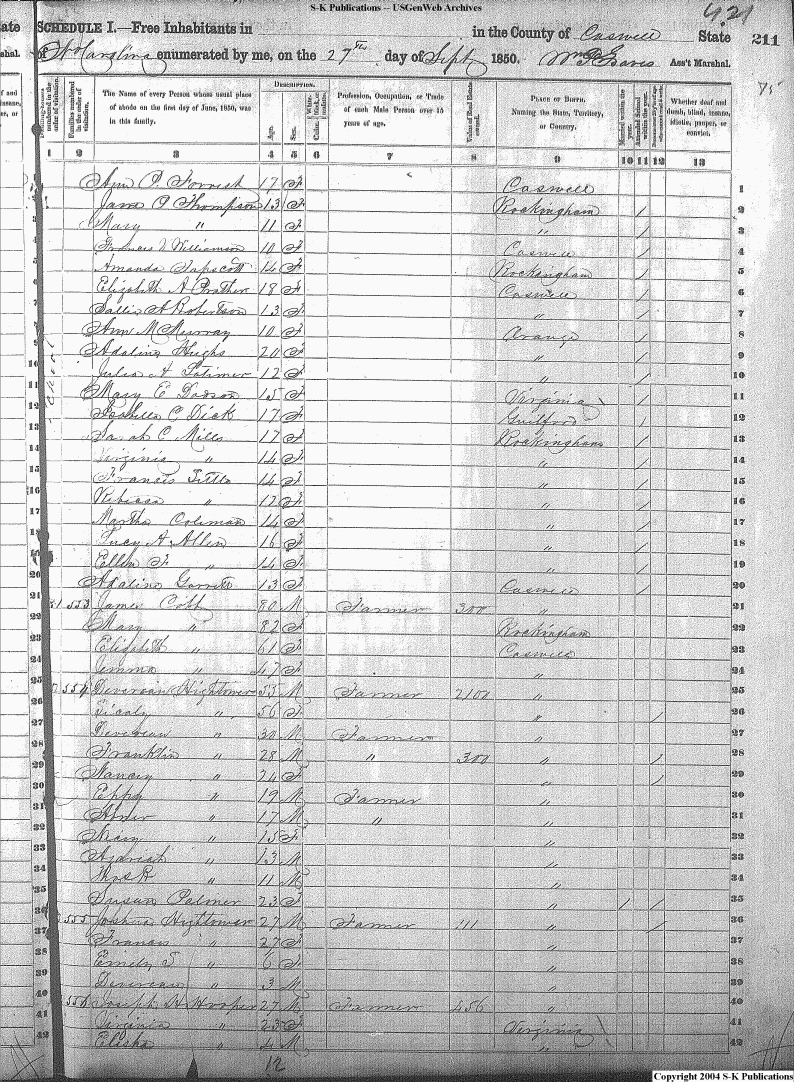 S-K Publications -- USGenWeb Archives
4.21
SCHEDULE I.—Free Inhabitants in in the County of Caswell State 211
of N Carolina enumerated by me, on the 27th day of Sept 1850. Ass't Marshal.
DESCRIPTION.
The Name of every Person whose usual place of abode on the first day of June, 1850, was in this family.
Age.
Sex.
Profession, Occupation, or Trade of each Male Person over 15 years of age.
Value of Real Estate owned.
PLACE OF BIRTH. Naming the State, Territory, or Country.
Whether deaf and dumb, blind, insane, idiotic, pauper, or convict.
1 2 3 4 5 6 7 8 9 10 11 12 13
Ann P. Forrest 17 F Caswell 1
Jane P Thompson 13 F Rockingham / 2
Mary " 11 F " / 3
Frances V Williamson 10 F Caswell / 4
Amanda Tapscott 14 F Rockingham / 5
Elizabeth A Prather 18 F Caswell / 6
Sallie A Robertson 13 F " / 7
Ann McMurray 10 F Orange / 8
Adaline Hughs 20 F " / 9
Julia A Latimer 12 F " / 10
Mary E Dodson 15 F Virginia / 11
Isabella C Dick 17 F Guilford / 12
Sarah C Mills 17 F Rockingham / 13
Virginia " 14 F " / 14
Francis Tuttle 14 F " / 15
Rebecca " 12 F " / 16
Martha Coleman 14 F " / 17
Lucy A. Allen 16 F " / 18
Ellen F " 14 F " / 19
Adaline Garrett 13 F Caswell / 20
553 James Cobb 80 M Farmer 300 " 21
Mary " 82 F Rockingham 22
Elizabeth " 61 F Caswell 23
Jemima " 47 F " 24
554 Deverean Hightower 55 M Farmer 2100 " 25
" 56 F " / 26
Deverean " 30 M Farmer " 27
Franklin " 28 M " 300 " / 28
Nancy " 24 F " / 29
Eppy " 19 M Farmer " 30
Abner " 17 M " " 31
" 15 F " 32
" 13 M " 33
" 11 M " 34
Susan Palmer 23 F " / / 35
555 Joshua Hightower 27 M Farmer 111 " / 36
Francis " 27 F " 37
Emely S " 6 F " 38
Deverean " 3 M " 39
556 Joseph H Hooper 27 M Farmer 456 " 40
Virginia " 23 F Virginia 41
Elisha " 4 M " 42
12
Copyright 2004 S-K Publications